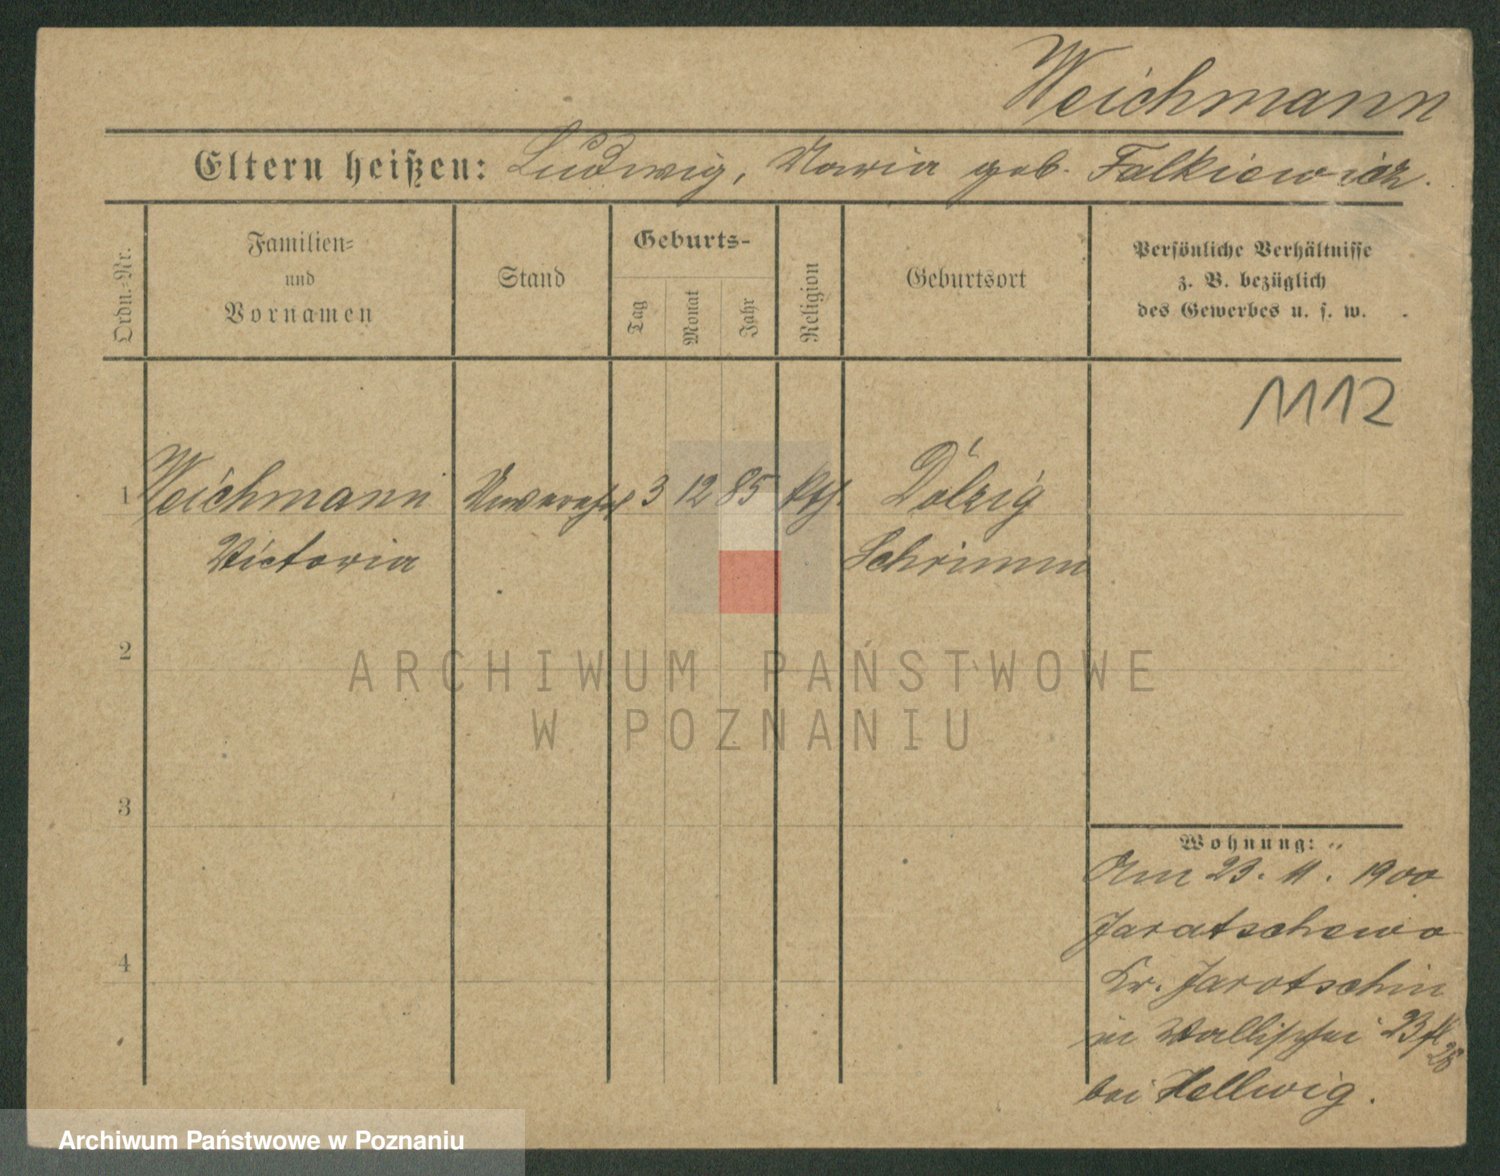 Weichmann
Eltern heißen: Ludwig, Maria geb. Falkiewicz.
Ordn.-Nr.
Familien-
und
Vornamen
Stand
Geburts-
Tag
Monat
Jahr
Religion
Geburtsort
Persönliche Verhältnisse
z. B. bezüglich
des Gewerbes u. s. w.
1112
1 Weichmann 3 12 85 kth. Dolzig
Victoria Schrimm
2
ARCHIWUM PAŃSTWOWE
W POZNANIU
3
Wohnung:
Am 23. 11. 1900
Jaratschewo
Kr. Jarotschin
in Wallischei 23
bei Hellwig.
4
Archiwum Państwowe w Poznaniu